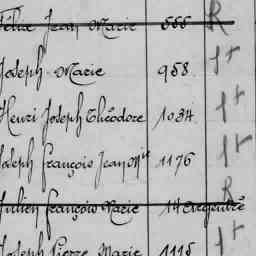 Félix Jean Marie 555 R
Joseph Marie 958 1+
Henri Joseph Théodore 1034 1+
Joseph François Jean Mie 1176 1+
Julien François Marie R
Joseph Pierre Marie 1115 1+